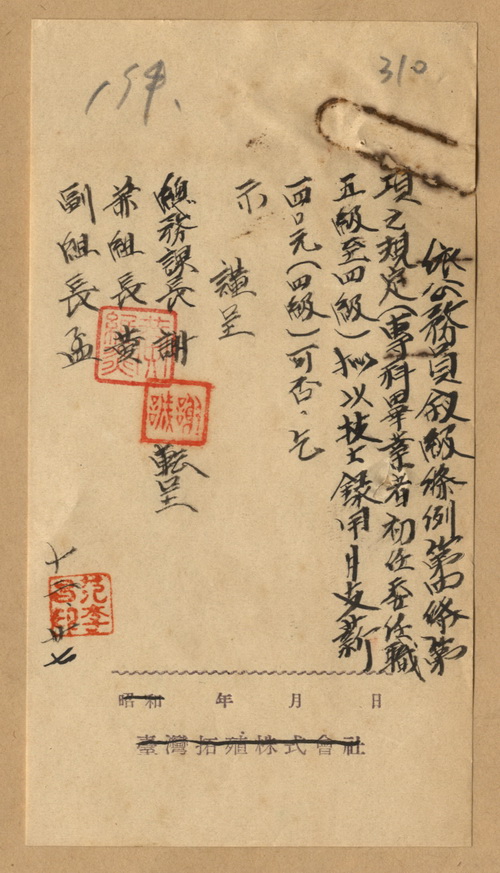 154.
310
依公務員敘級條例第四條第
項之規定(專科畢業者初任委任職
五級至四級)擬以技士錄用月支薪
一四〇元(四級)可否、乞
示
謹呈
總務課長謝
葉組長黃
副組長孟
転呈
昭和 年 月 日
臺灣拓殖株式會社